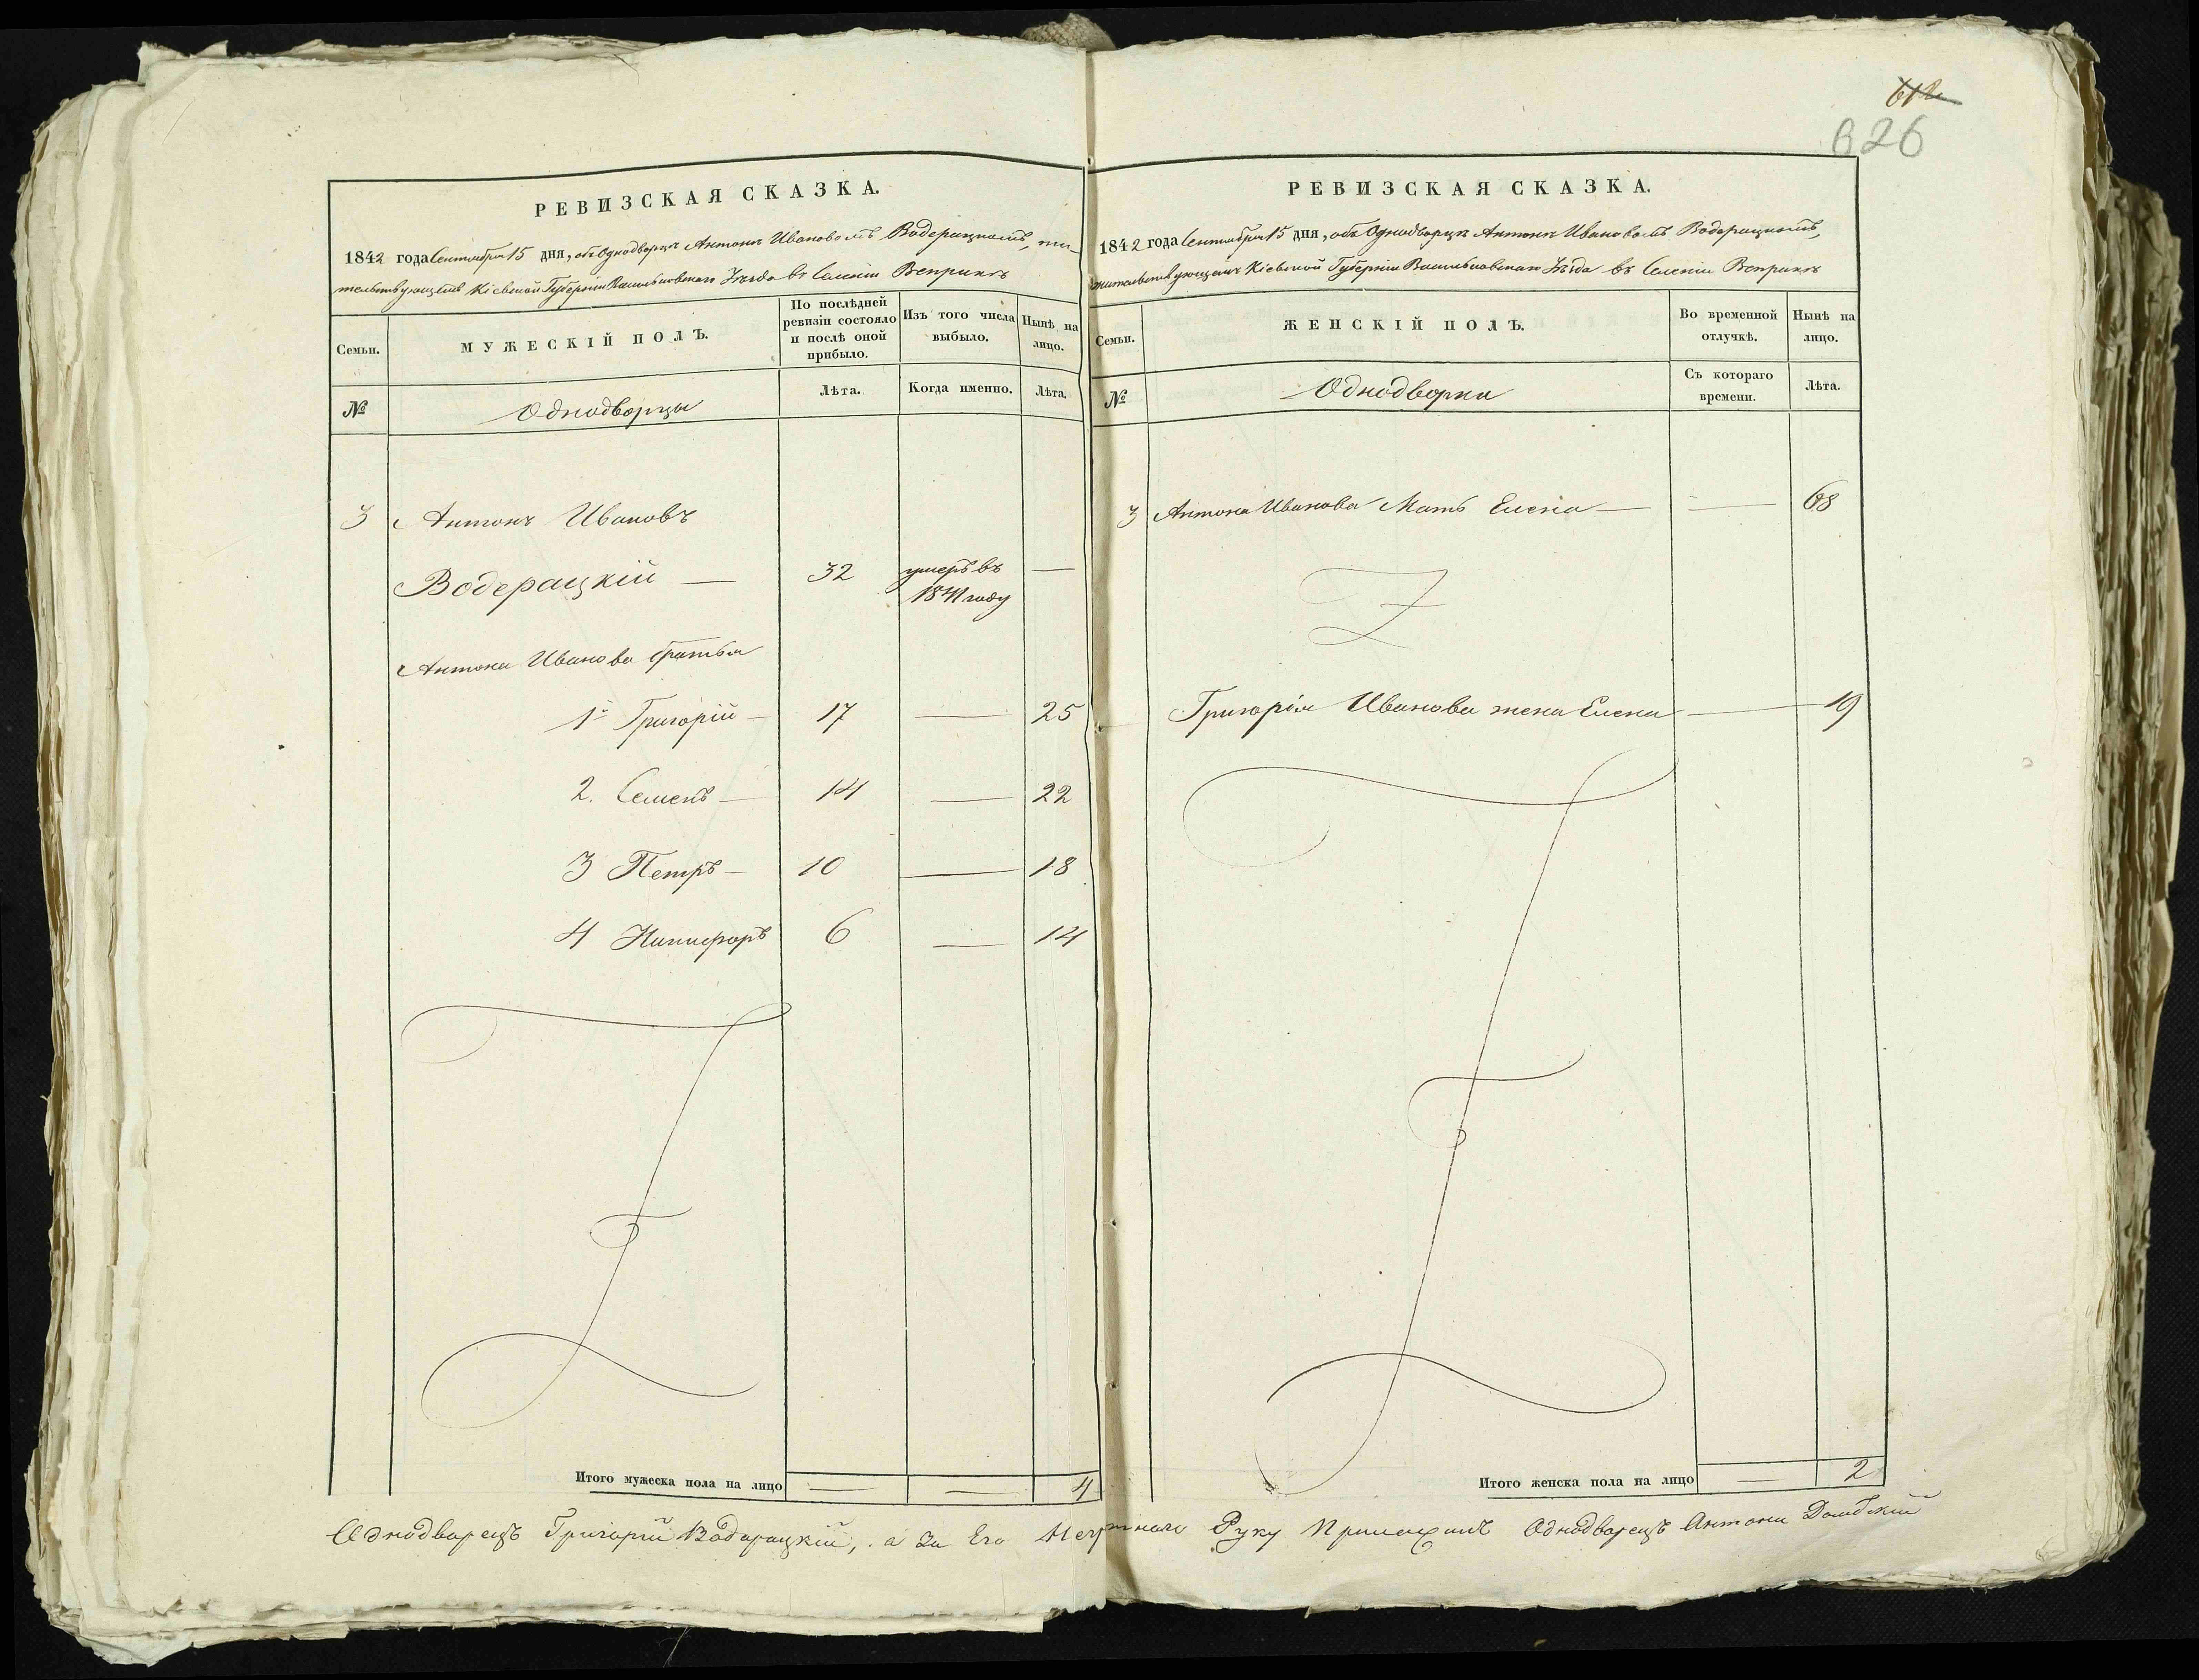 612
626
РЕВИЗСКАЯ СКАЗКА.
1842 года Сентября 15 дня, объ Однодворцѣ Антонѣ Ивановомъ Водерацкомъ, жи-
тельствующемъ Кіевской Губерніи Васильковскаго Уѣзда въ Селеніи Веприкѣ
Семьи.
МУЖЕСКІЙ ПОЛЪ.
По послѣдней ревизіи состояло и послѣ оной прибыло.
Изъ того числа выбыло.
Нынѣ на лицо.
№
Однодворцы
Лѣта.
Когда именно.
Лѣта.
3 Антонъ Ивановъ
Водерацкій — 32 умеръ въ —
1841 году
Антона Иванова братья
1й Григорій — 17 — 25
2. Семенъ — 14 — 22
3 Петръ — 10 — 18
4 Никифоръ 6 — 14
Итого мужеска пола на лицо — — 4
РЕВИЗСКАЯ СКАЗКА.
1842 года Сентября 15 дня, объ Однодворцѣ Антонѣ Ивановомъ Водерацкомъ,
жительствующемъ Кіевской Губерніи Васильковскаго Уѣзда въ Селеніи Веприкѣ
Семьи.
ЖЕНСКІЙ ПОЛЪ.
Во временной отлучкѣ.
Нынѣ на лицо.
№
Однодворки
Съ котораго времени.
Лѣта.
3 Антона Иванова Мать Елена — — 68
Григорія Иванова жена Елена — 19
Итого женска пола на лицо — 2
Однодворецъ Григорій Водарацкій, а За Его Негратнаго Руку Приложилъ Однодворецъ Антони Домбскій